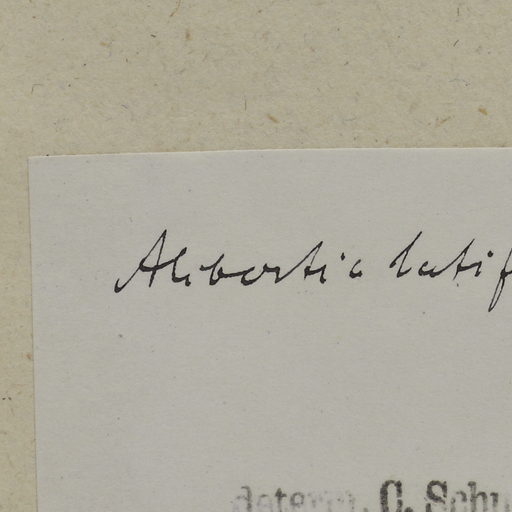 Alibertia latif
determ. C. Schu